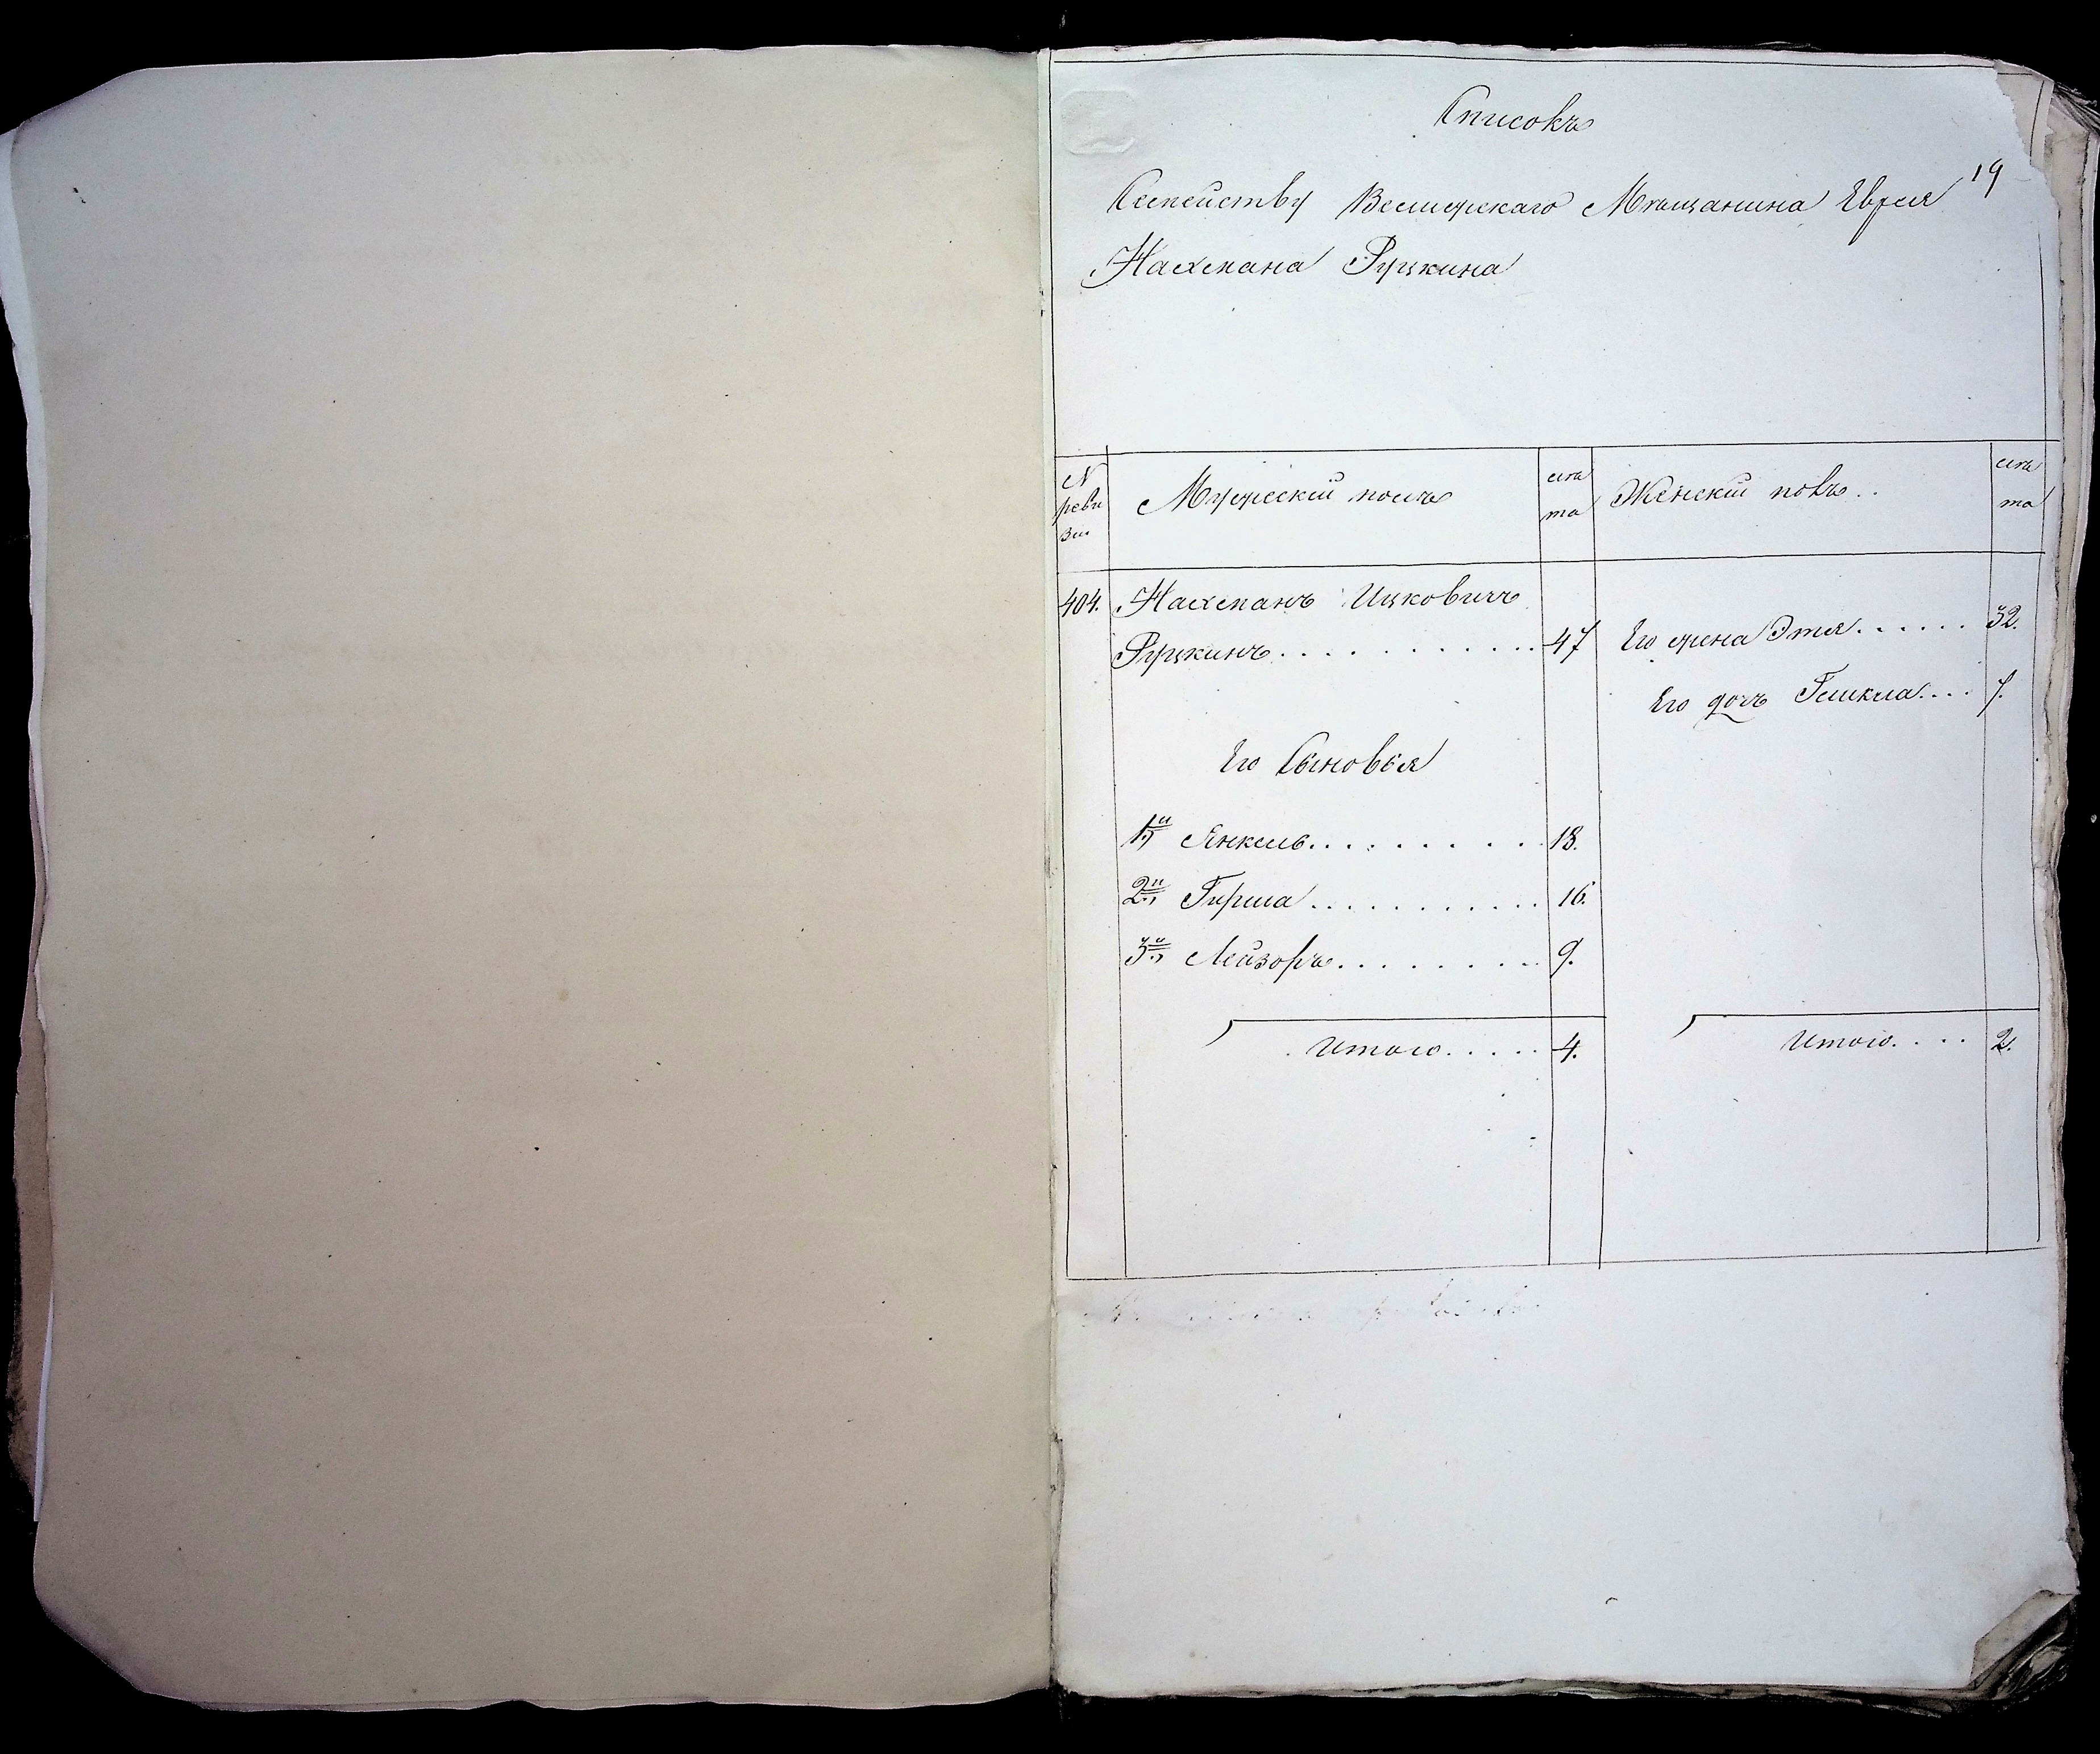 Списокъ
19
Семейству Велижскаго Мѣщанина Еврея
Нахмана Рудкина
N
реви
зіи
Мужескій полъ
лѣ
та
Женскій полъ..
лѣ
та
404.
Нахманъ Ицковичъ
Рудкинъ............ 47
Его жена Этя...... 32.
Его дочь .... 7.
Его Сыновья
1й Янкель.......... 18.
2й Гирша........... 16.
3й Лейзоръ......... 9.
Итого..... 4.
Итого.... 2.